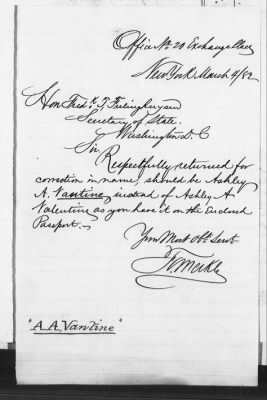 Office No 20 Exchange Place
New York March 9/82
Hon Fredk T. Frelinghuysen
Secretary of State.
Washington D.C
Sir
Respectfully returned for
correction in name, should be Ashley
A. Vantine, instead of Ashley A
Valentine as you have it on the Enclosed
Passport.
Your Most Obt Servt
"A.A. Vantine"